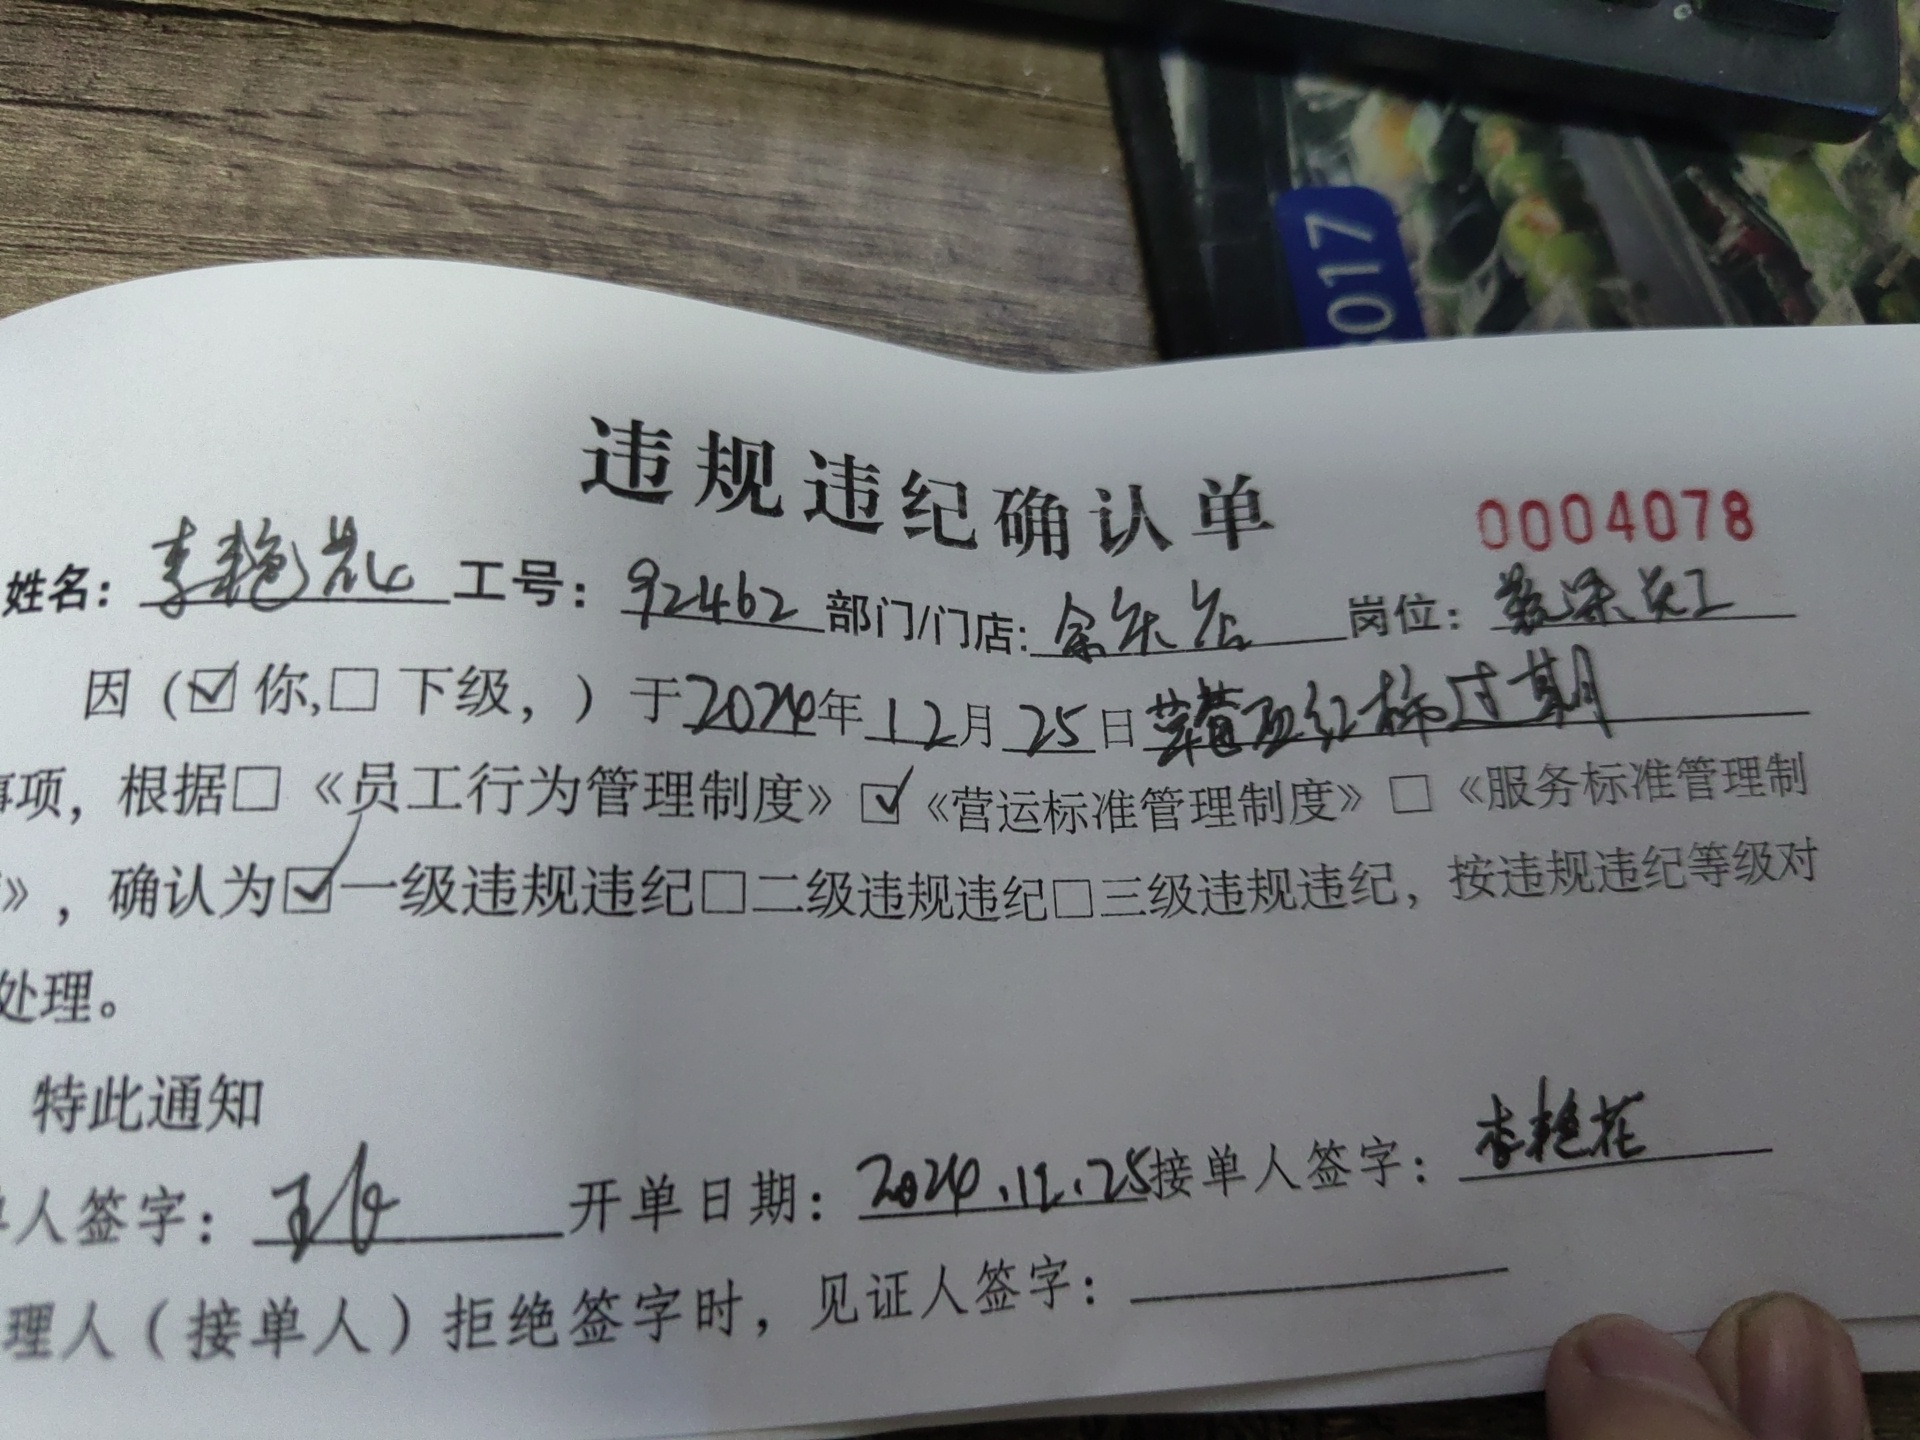 3017
违规违纪确认单
0004078
姓名：李艳花 工号：92462 部门/门店：余乐店 岗位：蔬果员工
因（☑你,□下级，）于2024年12月25日 过期
事项，根据□《员工行为管理制度》☑《营运标准管理制度》□《服务标准管理制
》，确认为☑一级违规违纪□二级违规违纪□三级违规违纪，按违规违纪等级对
处理。
特此通知
单人签字： 开单日期：2024.12.25 接单人签字：李艳花
理人（接单人）拒绝签字时，见证人签字：